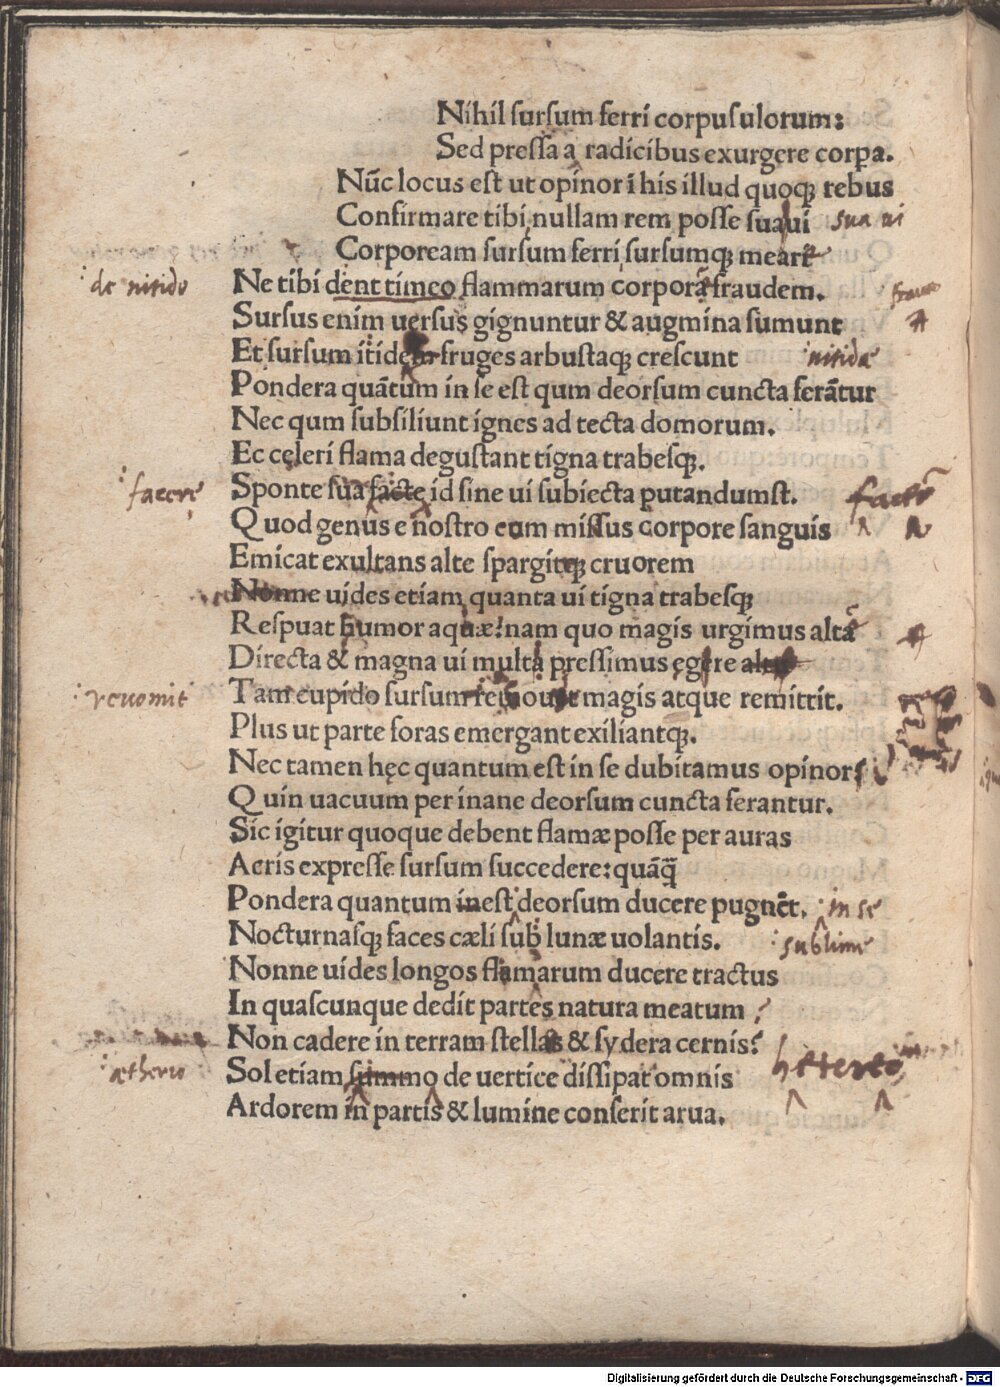 Nihil sursum ferri corpus ulorum:
Sed pressa a radicibus exurgere corpa.
Nūc locus est ut opinor ī his illud quoqꝫ rebus
Confirmare tibi nullam rem posse suaui sua ui
Corpoream sursum ferri sursumqꝫ meare
de nitido Ne tibi dent timeo flammarum corpora fraudem.
Sursus enim uersus gignuntur & augmina sumunt
Et sursum itidem fruges arbustaqꝫ crescunt nitidæ
Pondera quātum in se est qum deorsum cuncta ferātur
Nec qum subsiliunt ignes ad tecta domorum.
Ec celeri flama degustant tigna trabesqꝫ.
facere Sponte sua facte id sine ui subiecta putandumst.
Quod genus e nostro cum missus corpore sanguis
Emicat exultans alte spargitqꝫ cruorem
Nonne uides etiam quanta ui tigna trabesqꝫ
Respuat humor aquæ? nam quo magis urgimus alta
Directa & magna ui multa pressimus egere
reuomit Tam cupido sursum magis atque remittit.
Plus ut parte foras emergant exiliantqꝫ.
Nec tamen hęc quantum est in se dubitamus opinor
Quin uacuum per inane deorsum cuncta ferantur.
Sic igitur quoque debent flamæ posse per auras
Aeris expresse sursum succedere: quāq̄
Pondera quantum inest deorsum ducere pugnēt. in se
Nocturnasqꝫ faces cæli sub lunæ uolantis. sublime
Nonne uides longos flamarum ducere tractus
In quascunque dedit partes natura meatum
Non cadere in terram stellas & sydera cernis?
ætherio Sol etiam summo de uertice dissipat omnis
Ardorem in partis & lumine conserit arua.
Digitalisierung gefördert durch die Deutsche Forschungsgemeinschaft - DFG